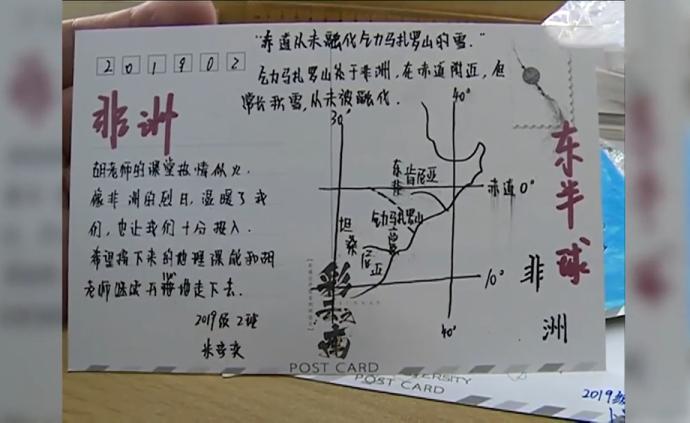 "赤道从未融化乞力马扎罗山的雪."
乞力马扎罗山处于非洲,在赤道附近,但
常长积雪,从未被融化.
201902
非洲
胡老师的课堂热情似火.
像非洲的烈日,温暖了我
们,也让我们十分投入.
希望接下来的地理课能和胡
老师继续开
走下去.
2019级2班
30°
40°
东非
肯尼亚
赤道0°
乞力马扎罗山
坦桑
尼亚
10°
40°
东半球
非洲
彩云之南
POST CARD
POST
ERSITY
CARD
2019级